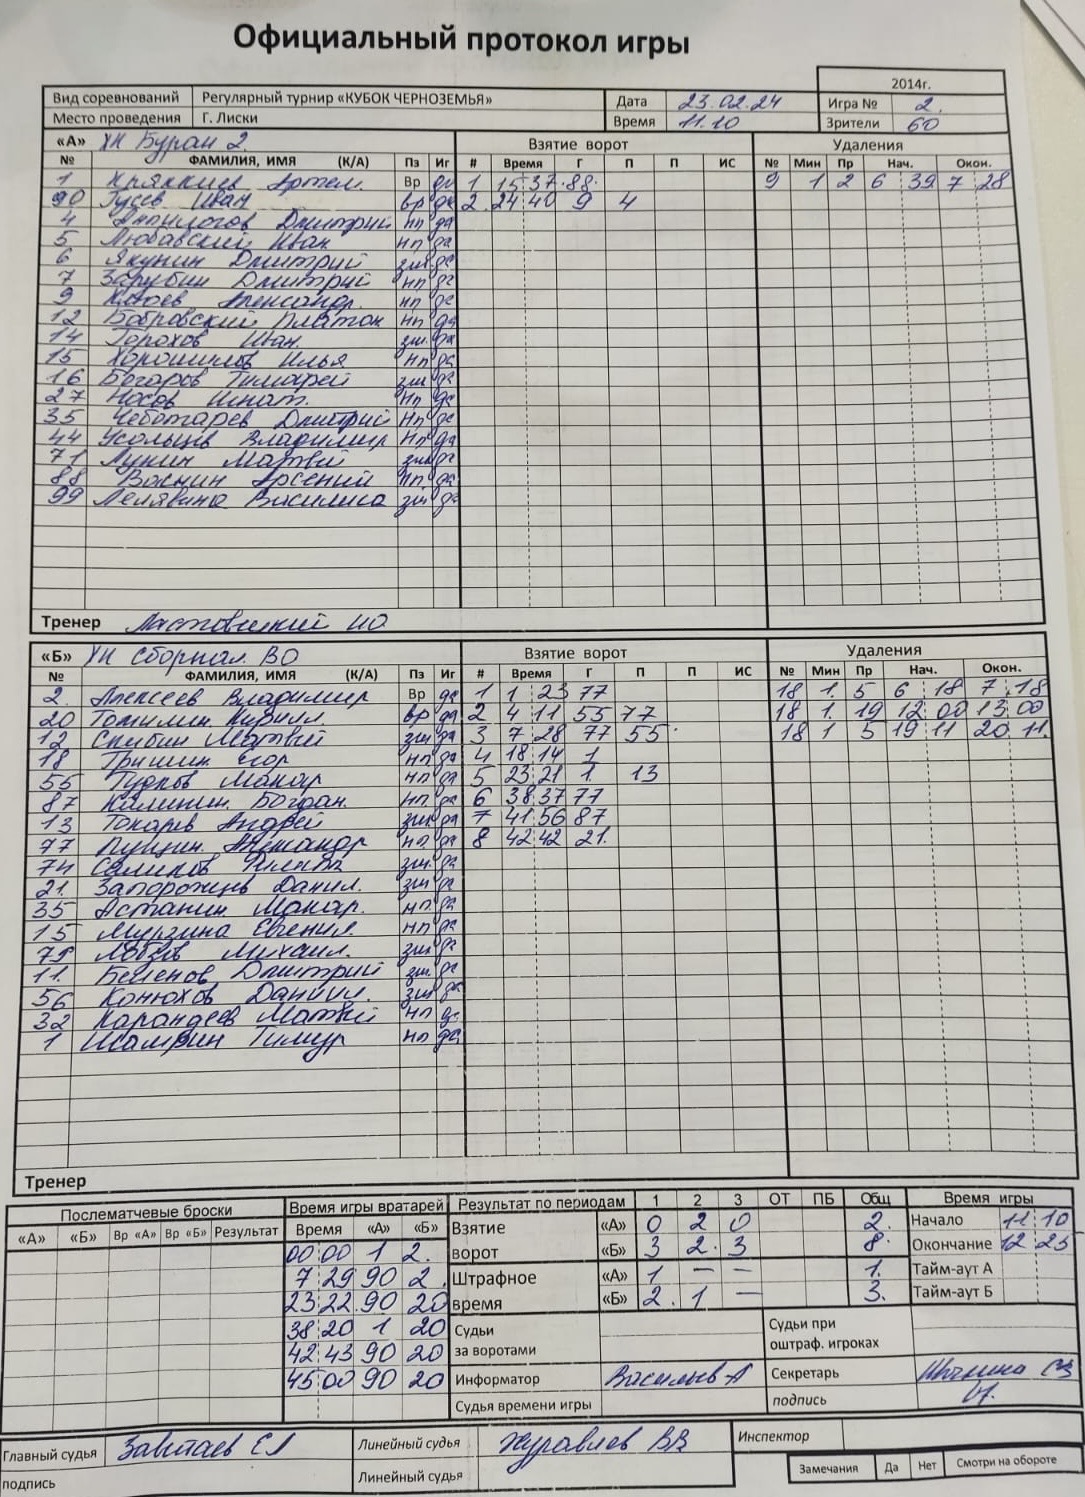 Официальный протокол игры
2014г.
Вид соревнований Регулярный турнир «КУБОК ЧЕРНОЗЕМЬЯ» Дата 23.02.24 Игра № 2.
Место проведения Г. Лиски Время 11.10 Зрители 60
«А» ХК Буран 2. Взятие ворот Удаления
№ ФАМИЛИЯ, ИМЯ (К/А) Пз Иг # Время Г П П ИС № Мин Пр Нач. Окон.
1 Артем. Вр да 1 15 37 88 9 1 2 6 39 7 28
90 Гусев Иван вр да 2 24 40 9 4
4 Дмитрий нп да
5 Любавский Иван нп да
6 Якунин Дмитрий зщ да
7 Зарубин Дмитрий нп да
9 Клоев Александр. нп да
12 Бобровский Платон нп да
14 Горохов Иван. зщ да
15 Хорошилов Илья нп да
16 Богаров Тимофей зщ да
27 Носов Игнат. нп да
35 Чеботарев Дмитрий нп да
44 Усольцев Владимир нп да
71 Лунин Матвей зщ да
88 Арсений нп да
99 Лелявина Василиса зщ да
Тренер Ластовецкий
«Б» ХК Сборная ВО Взятие ворот Удаления
№ ФАМИЛИЯ, ИМЯ (К/А) Пз Иг # Время Г П П ИС № Мин Пр Нач. Окон.
2. Алексеев Владимир Вр да 1 1 23 77 18 1. 5 6 18 7 18
20 Томилин Кирилл. вр да 2 4 11 55 77 18 1. 19 12 00 13 00
12 Скибин Матвей зщ да 3 7 28 77 55 18 1 5 19 11 20 11.
18 Гришин Егор нп да 4 18 14 1
55 Гудков Макар нп да 5 23 21 1. 13
87 Калинин. Богдан. нп да 6 38 37 77
13 Токарев Андрей зщ да 7 41 56 87
77 Александр нп да 8 42 42 21.
74 Селиков зщ да
21. Запорожцев Данил. зщ да
35 Астанин Макар. нп да
15 Мурзина Евгения. нп да
79 Лобзев Михаил. зщ да
11. Беленов Дмитрий зщ да
56 Конюхов Даниил. зщ да
32 Карандеев Матвей нп да
1 Шамрин Тимур нп да
Тренер
Послематчевые броски Время игры вратарей Результат по периодам 1 2 3 ОТ ПБ Общ Время игры
«А» «Б» Вр «А» Вр «Б» Результат Время «А» «Б» Взятие ворот «А» 0 2 0 2. Начало 11 10
00 00 1 2. «Б» 3 2. 3 8. Окончание 12 25
7 29 90 2. Штрафное время «А» 1 – – 1. Тайм-аут А
23 22 90 20 «Б» 2. 1 – 3. Тайм-аут Б
38 20 1 20 Судьи за воротами Судьи при оштраф. игроках
42 43 90 20
45 00 90 20 Информатор Васильев А Секретарь
Судья времени игры подпись
Главный судья Завитаев Линейный судья Журавлев ВВ Инспектор
подпись Линейный судья Замечания Да Нет Смотри на обороте